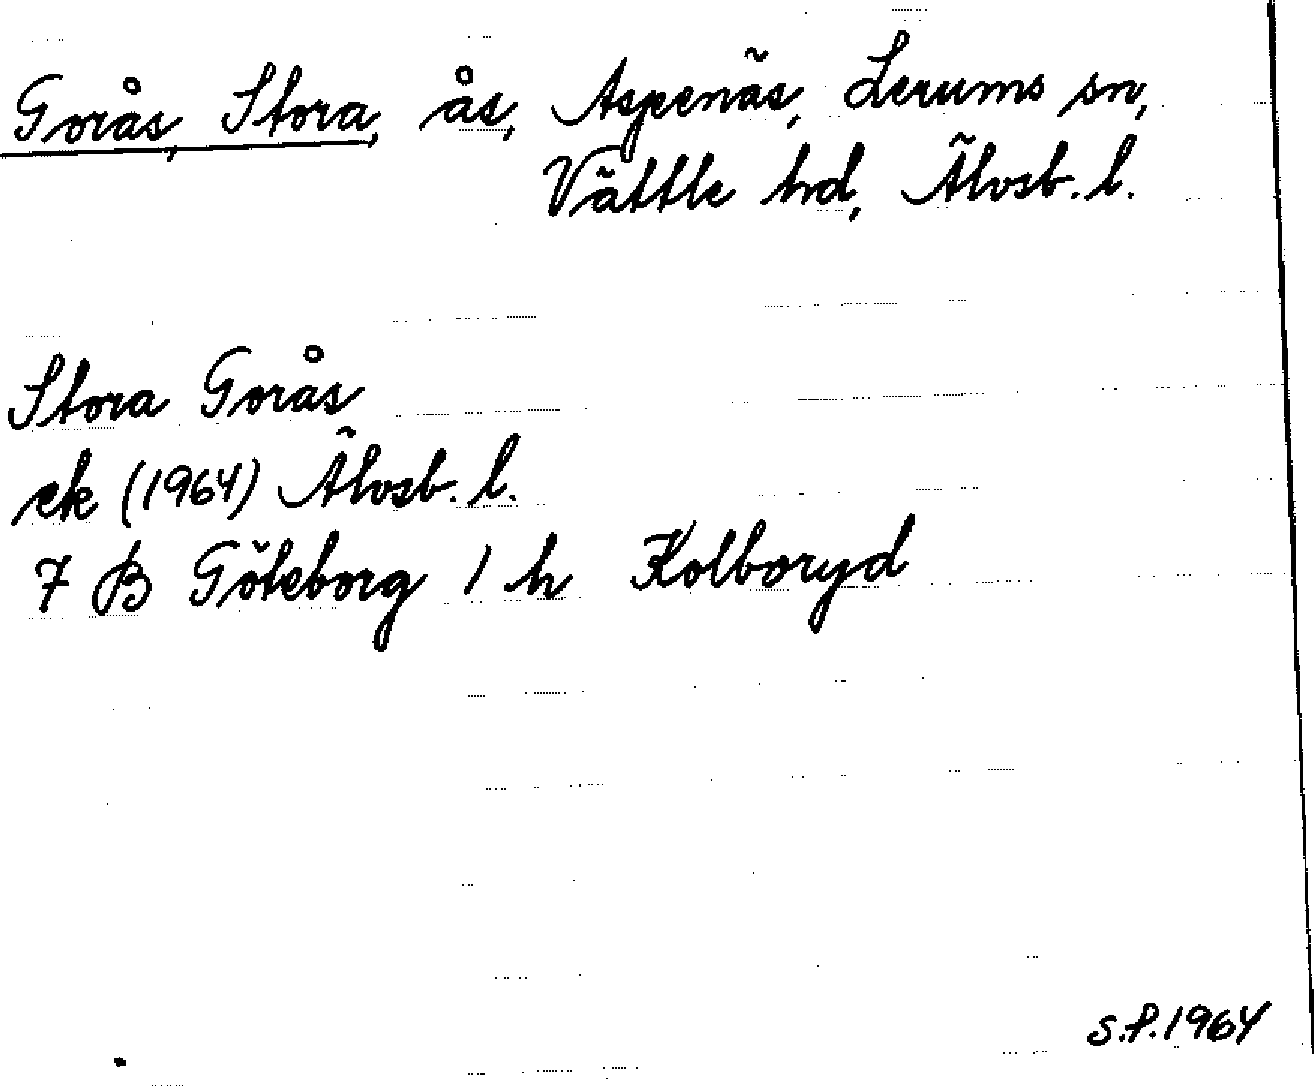 Gorås, Stora, ås, Aspenäs, Lerums sn,
Vättle hd, Älvsb. l.
Stora Gorås
ek (1964) Älvsb. l.
7 B Göteborg 1 h Kolboryd
s.f. 1964